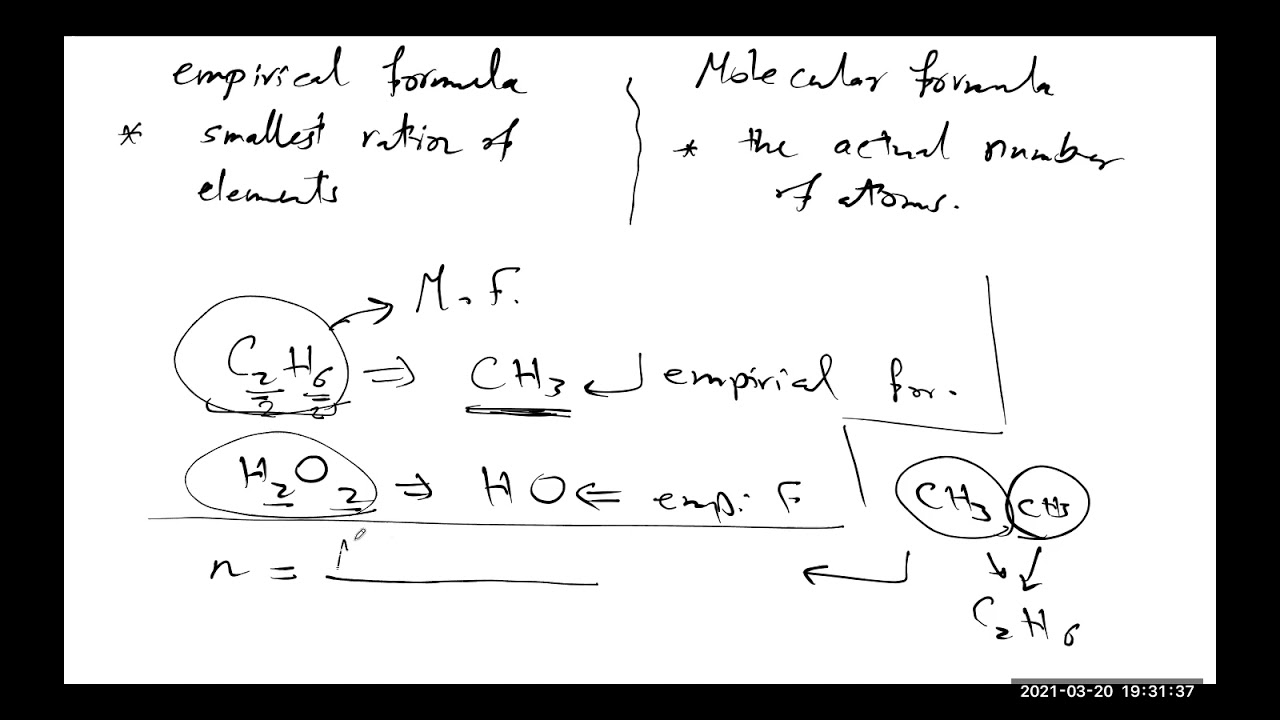 empirical formula
* smallest ratio of
elements
Molecular formula
* the actual number
of atoms.
M.F.
C2H6 ⇒ CH3 empirical for.
2 2
H2O2 ⇒ HO ⇐ emp. F
CH3 CH3
n =
C2H6
2021-03-20 19:31:37